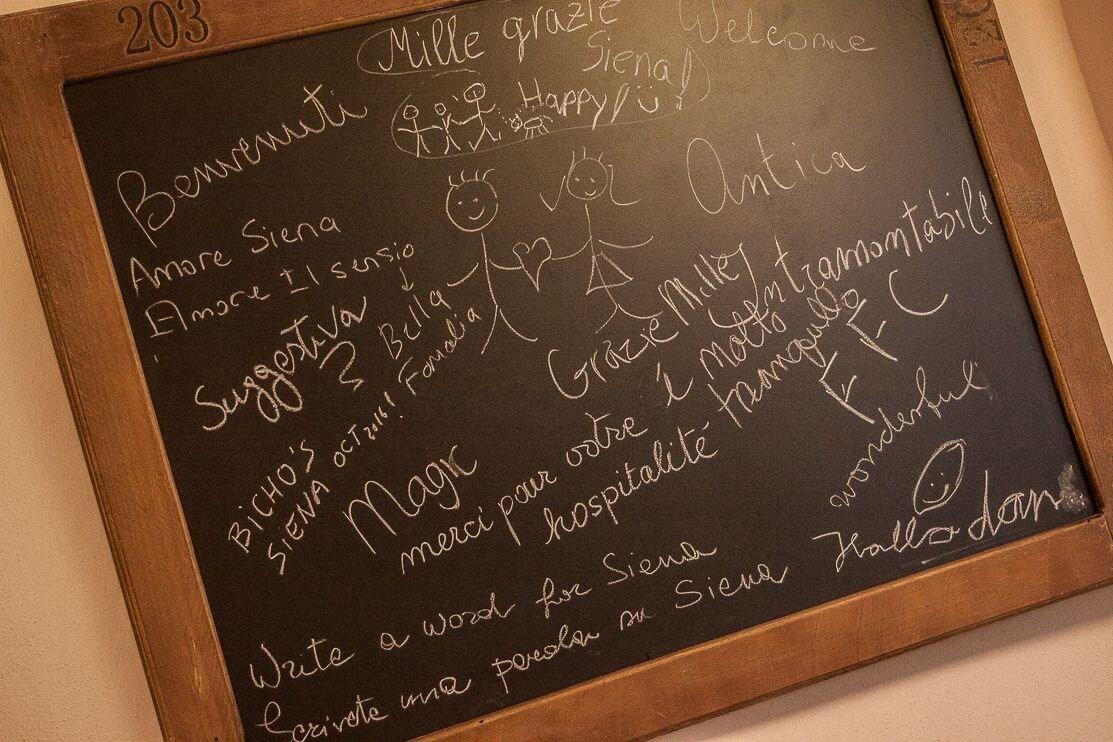 203
120
Mille grazie
Welcome
Siena!
Happy!
Benvenuti
Antica
Amore Siena
Amore Il sensio
Suggestiva
Bella
Famalia
Intramontabile
Grazie Mille
é molto
tranquillo
BiCHO'S
SIENA OCT 2016!
Magic
merci pour votre
hospitalité
wonderful
Write a word for Siena
Scrivete una parola su Siena